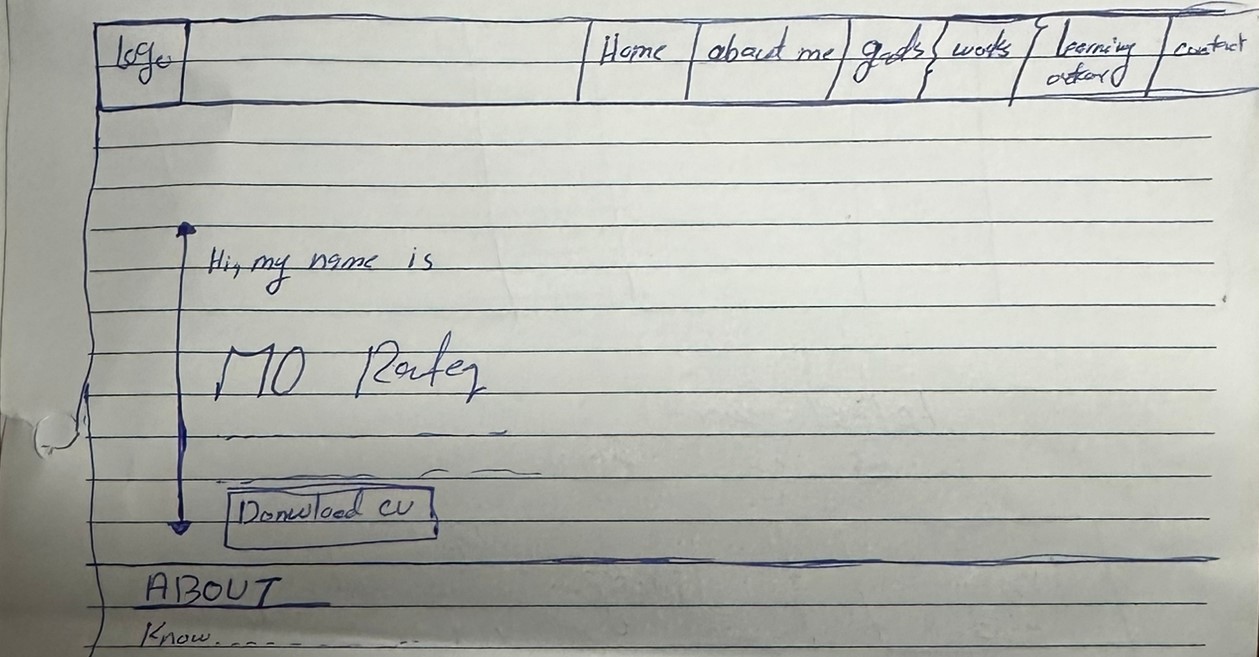 Logo
Home
about me
goals
works
learning
contact
Hi, my name is
MO
Donwload cv
ABOUT
Know.....